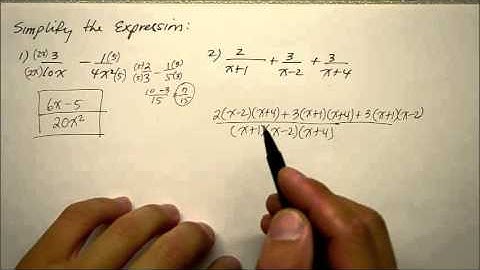 Simplify the Expression:
1) (2x)3/(2x)10x - 1(5)/4x²(5)
(5)2/(5)3 - 1(3)/5(3)
10-3/15 = 7/15
6x-5/20x²
2) 2/x+1 + 3/x-2 + 3/x+4
2(x-2)(x+4)+3(x+1)(x+4)+3(x+1)(x-2)
(x+1)(x-2)(x+4)